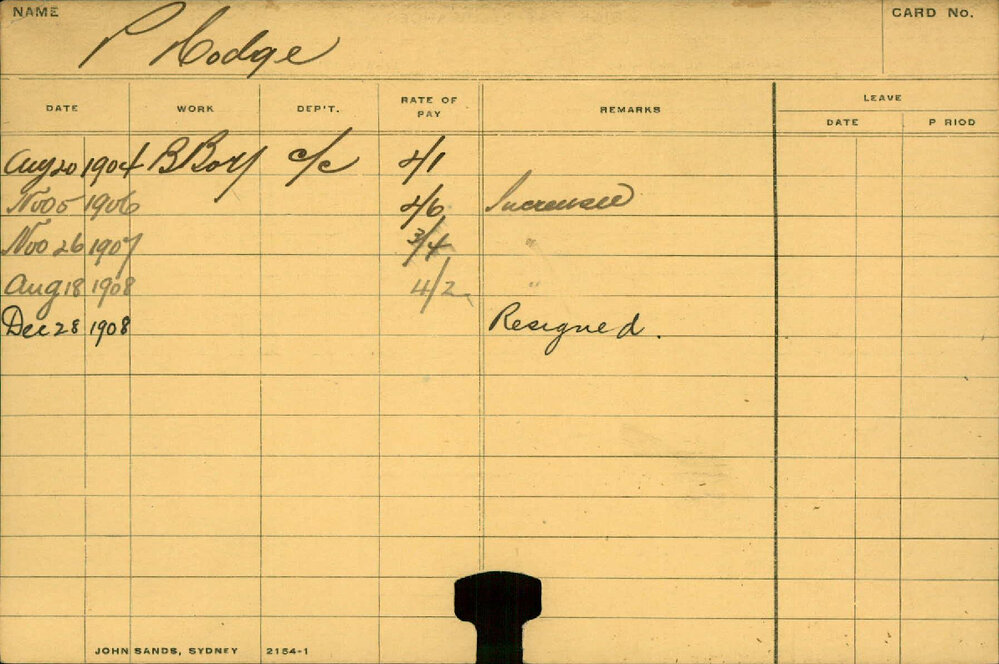 NAME
P Hodge
CARD No.
DATE WORK DEP'T. RATE OF PAY REMARKS LEAVE
DATE P RIOD
Aug 20 1904 B Boy c/c 2/1
Nov 5 1906 2/6 Increased
Nov 26 1907 3/4 "
Aug 18 1908 4/2 "
Dec 28 1908 Resigned.
JOHN SANDS, SYDNEY 2154-1